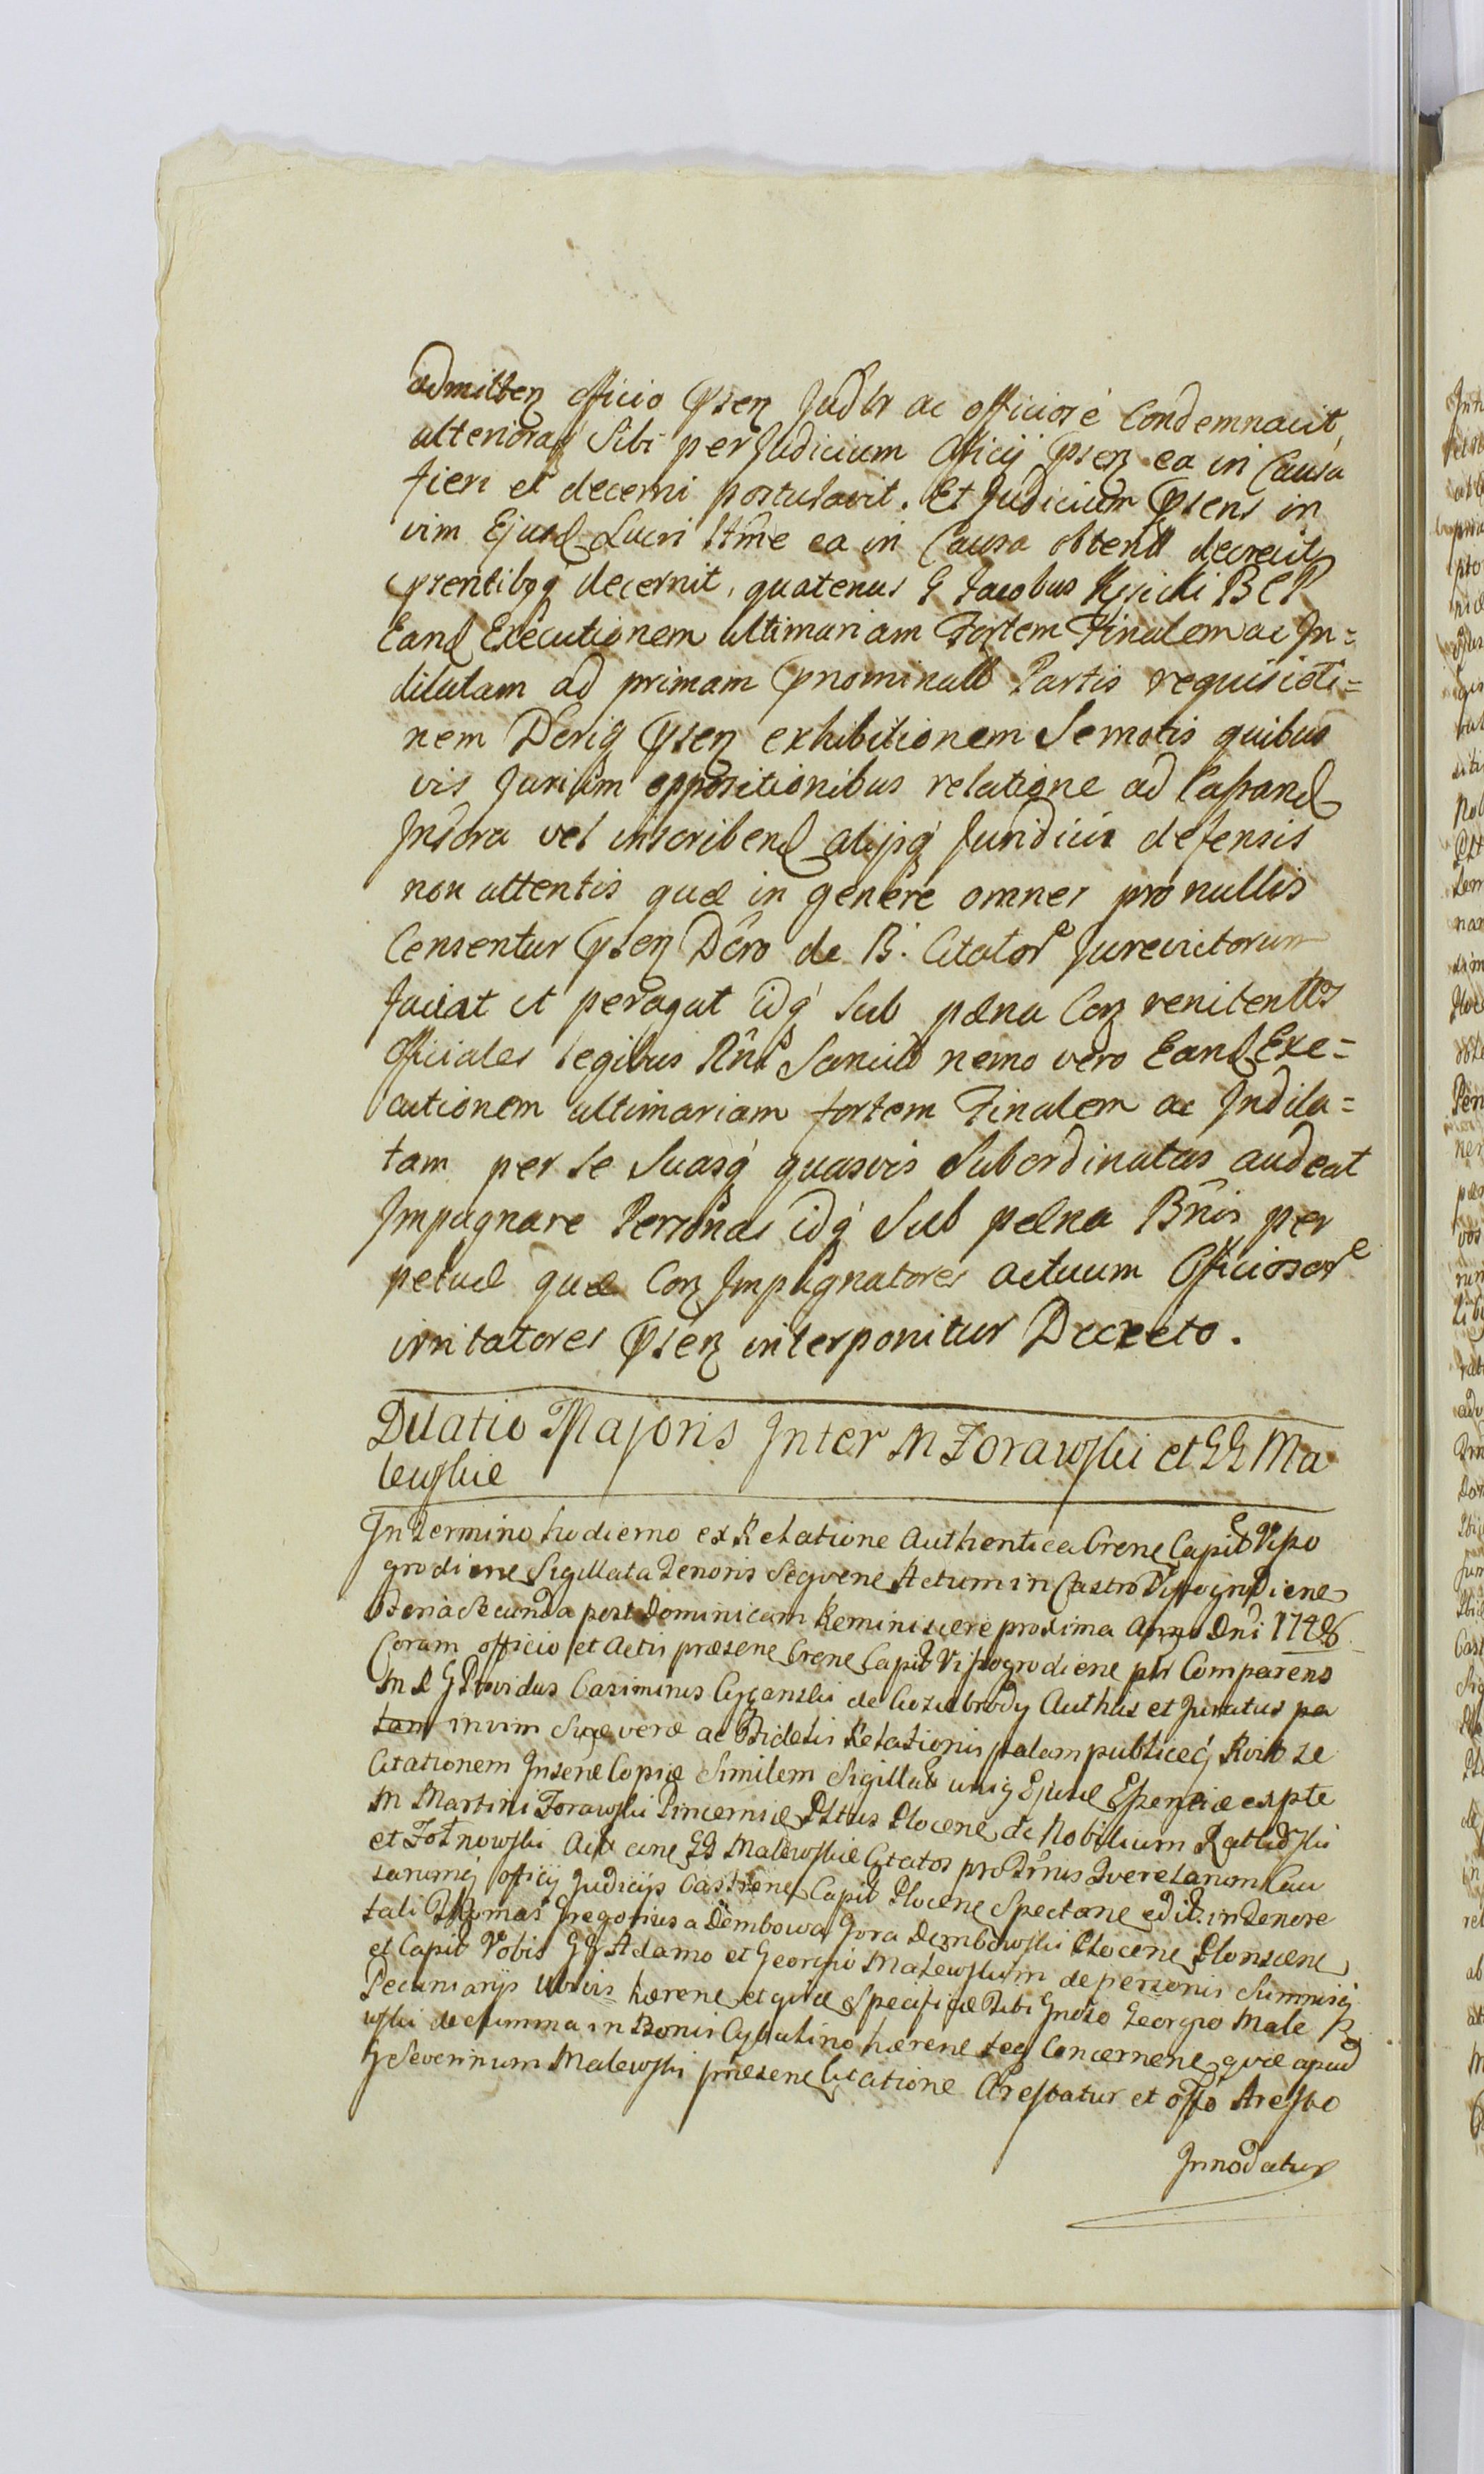 admitten officio Psen Judtr ac officiosè Condemnavit,
alterioraq́ Sibi per Judicium Officij Psen ea in Causa
fieri et decerni postulavit. Et Judicium Psens in
vim Ejusd Lucri ea in Causa obtent decrevit
Psentibqq́ decernit, quatenus G Jacobus Kysicki BCP
Eand Executionem ultimariam Fortem Finalem ac In=
dilatam ad primam Pnominatt Partis requisicti=
nem Psen exhibitionem Semotis quibus
vis Jurium oppositionibus relatione ad Cassand
vel inscribend alijsq́ Juridicis defensis
non attentis quæ in genere omnes pro nullis
Censentur Psen Dcro de B. Citator Jurevictorum
faciat et peragat idq́ Sub pæna Con renitentes
officiales legibus Rni Sancitt nemo vero Eand Exe=
cutionem ultimariam fortem Finalem ac Indila=
tam per se Suasq́ quasvis Subordinatas audeat
Impugnare Personas idq́ Sub pæna Bnis per
petuæ quæ Con Impugnatores actuum Officiosor
irritatores Psen interponitur Decreto.
Dilatio Majoris Inter M Zorawski et GG Ma
lewskie
In Termino hodierno ex Relatione Authentica Crene Capit Visso
grodiene Sigillata Tenoris Seqvene Actum in Castro Vissogrodiene
Feria Secunda post Dominicam Reminiscere proxima Anno Dni 1748
Coram officio et Actis præsene Crene Capit Vissogrodiene ptr Comparens
Providus Casimirus Cyganski de Authus et Juratus pa
lam in vim Suæ veræ ac Fidelis Relationis palam publiceq́ Rvit se
Citationem Insene Copiæ Similem Sigillat uniq Ejusd Essentiæ ex pte
M Martini Zorawski Pincerniæ Plttus Plocene de Nobilium
et GG Malewskie Citatos pro Trnis Qverelarum Cau
sarumq́ officij Judicijs Castrene Capit Plocene Spectane edit. in Tenore
tali Thomas Gregorius a Dembowa Gora Dembowski Plocene Plonscene
et Capit Vobis GG Adamo et Georgio Malewskim de personis Summisq́
Pecuniarijs Ubivis hærene et qvidæ Specifice Tibi Gnoso Georgio Male
wski de Summa in Bonis hærene seq Concernene qvæ apud
G Severinum Malewski præsene Citatione Arestatur et offo Aresto
Innodatur